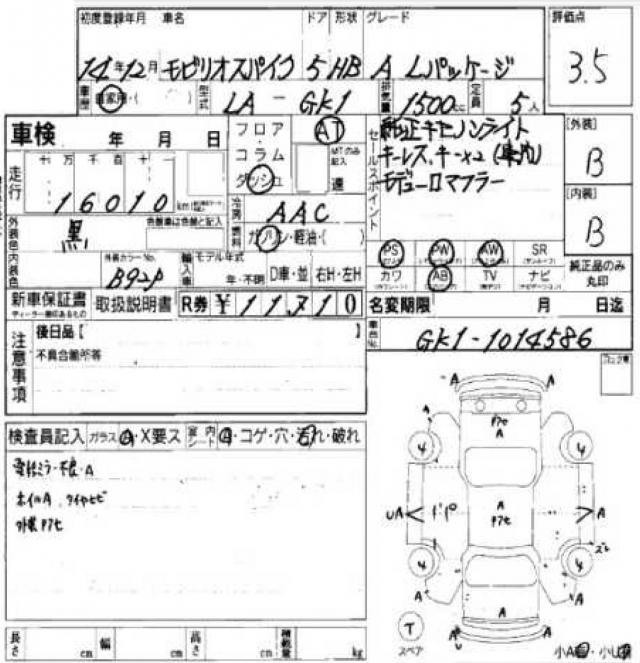 初度登録年月 車名 ドア 形状 グレード 評価点
14年12月 モビリオスパイク 5 HB A Lパッケージ 3.5
車歴 自家用・( ) 型式 LA - GK1 排気量 1500cc 定員 5人
車検 年 月 日
フロア・コラム ダッシュ AT MTのみ記入 速
セールスポイント
純正キセノンライト
キーレス、キー×2
モデューロマフラー
[外装] B
[内装] B
走行 十 万 千 百 十 一
16010 km
外装色 黒 色替車は色替と記入
冷房 AAC
燃料 ガソリン・軽油・( )
内装色 外装カラーNo. B92P
輸入車 モデル年式 年・不明 D車・並 右H・左H
PS PW AW SR
カワ AB TV ナビ
純正品のみ丸印
新車保証書 取扱説明書 R券 ¥11710
名変期限 月 日迄
車台No. GK1-1014586
注意事項
後日品【 】
不具合箇所等
検査員記入 ガラス A・X要ス 室内シート コゲ・穴・汚れ・破れ
ホイルA タイヤヒビ
外装アセ
A A
アセ
A
4 4
UA A
A
アセ
4 4
A A
A
T
スペア
A
長さ cm 幅 cm 高さ cm 積載量 kg